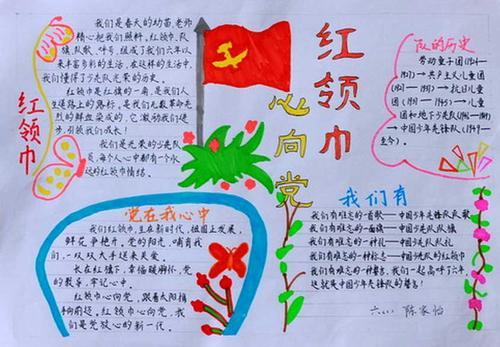 红领巾
心向党
红领巾
我们是春天的幼苗,老师
精心把我们照料。红领巾、队
旗、队歌、呼号,组成了我们六年以
来丰富多彩的生活,在这样的生活中
我们懂得了少先队光荣的历史。
红领巾是红旗的一角,是我们人
生道路上的路标,是我们无数革命先
烈的鲜血染成的,它激励我们进
步,引领我们成长!
我们是光荣的少先队
员,每个人心中都有一个永
远的红领巾情结。
队的历史
劳动童子团(1924—
1927)→共产主义儿童团
(1927—1937)→抗日儿童
团(1937—1945)→儿童
团和地下少先队(1945—1949)
→中国少年先锋队(1949—
至今)。
党在我心中
我们红领巾,生在新时代,祖国在发展,
鲜花争艳开。党的阳光,哺育我
们,一双双大手送来关爱。
长在红旗下,幸福暖胸怀,党
的教导,牢记心中。
红领巾心向党,跟着太阳旗
向前进。红领巾心向党,我
们是党放心的新一代。
我们有
我们有难忘的首歌—中国少年先锋队队歌
我们有难忘的一面旗—中国少先队队旗
我们有难忘的一种礼—中国少先队队礼
我们有难忘的一种标志—中国少先队的红领巾
我们有难忘的一种誓言,我们一起高呼了六年,
这就是中国少年先锋队的誓言!
陈家怡